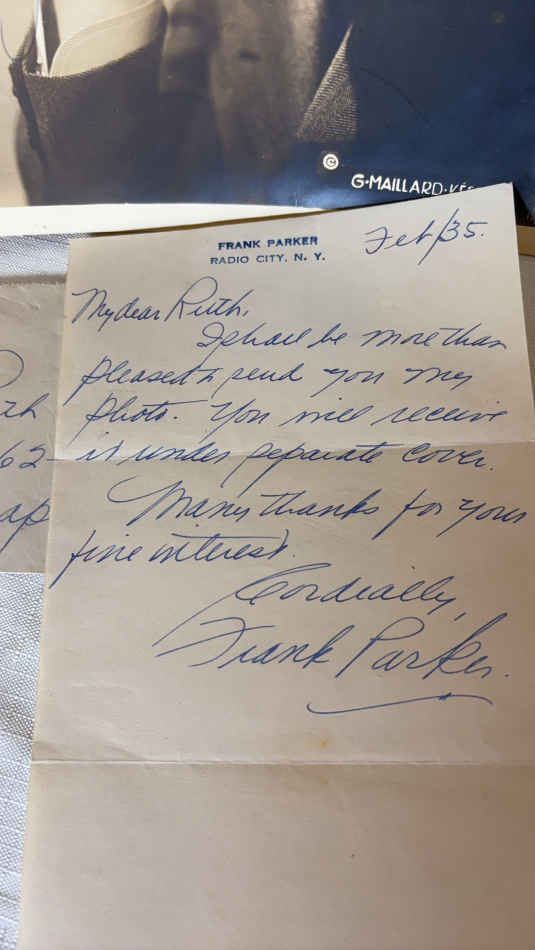 © G·MAILLARD·KES
FRANK PARKER
RADIO CITY, N. Y.
Feb/35.
My dear Ruth,
I shall be more than
pleased to send you my
photo. You will receive
it under separate cover.
Many thanks for your
fine interest.
Cordially,
Frank Parker.
th
62
ap